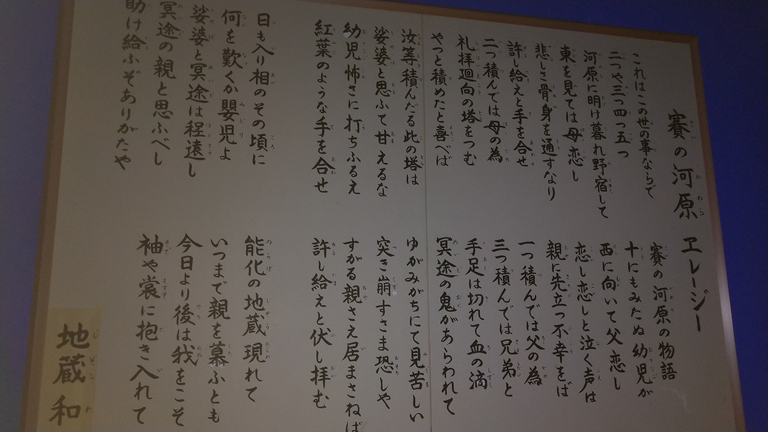 賽の河原 エレージー
これはこの世の事ならで
賽の河原の物語
二つや三つ四つ五つ
十にもみたぬ幼児が
河原に明け暮れ野宿して
西に向いて父恋し
東を見ては母恋し
恋し恋しと泣く声は
悲しさ骨身を通すなり
親に先立つ不幸をば
許し給えと手を合せ
一つ積んでは父の為
二つ積んでは母の為
三つ積んでは兄弟と
礼拝廻向の塔をつむ
手足は切れて血の滴
やっと積めたと喜べば
冥途の鬼があらわれて
汝等積んだる此の塔は
ゆがみがちにて見苦しい
娑婆と思ふて甘えるな
突き崩すさま恐しや
幼児怖さに打ちふるえ
すがる親さえ居まさねば
紅葉のような手を合せ
許し給えと伏し拝む
日も入り相のその頃に
能化の地蔵現れて
何を歎くか嬰児よ
いつまで親を慕ふとも
娑婆と冥途は程遠し
今日より後は我をこそ
冥途の親と思ふべし
袖や裳に抱き入れて
助け給ふぞありがたや
地蔵和